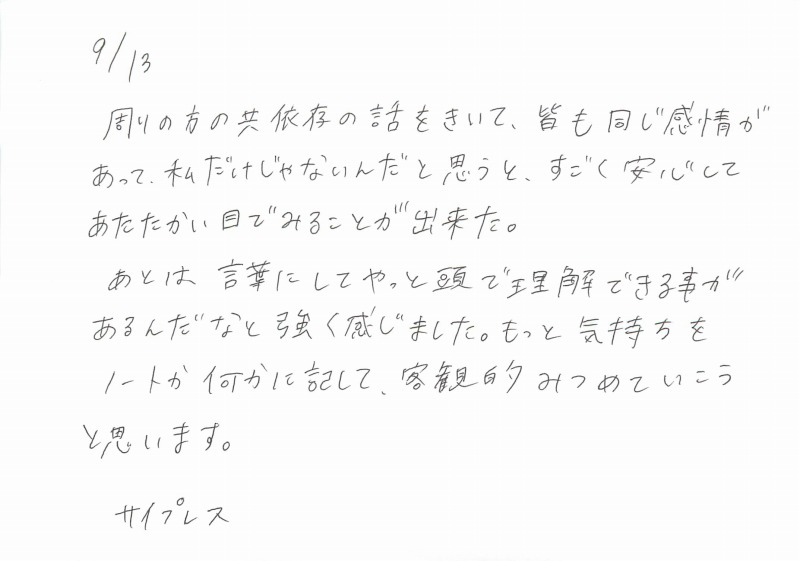 9/13
周りの方の共依存の話をきいて、皆も同じ感情が
あって、私だけじゃないんだと思うと、すごく安心して
あたたかい目でみることが出来た。
あとは言葉にしてやっと頭で理解できる事が
あるんだなと強く感じました。もっと気持ちを
ノートか何かに記して、客観的みつめていこう
と思います。
サイプレス